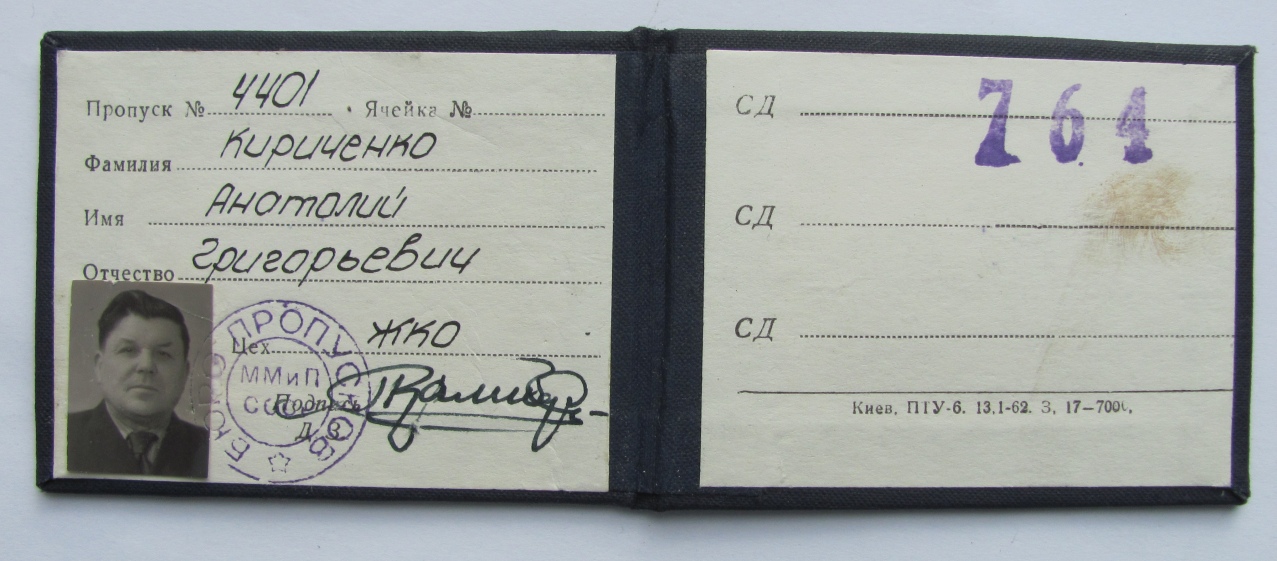 Пропуск № 4401 . Ячейка №
Фамилия Кириченко
Имя Анатолий
Отчество Григорьевич
Цех ЖКО
Подпись
Д. З.
БЮРО ПРОПУСКОВ
ММиП
СССР
СД 764
СД
СД
Киев, ПТУ-6. 13.1-62. З, 17—7000,